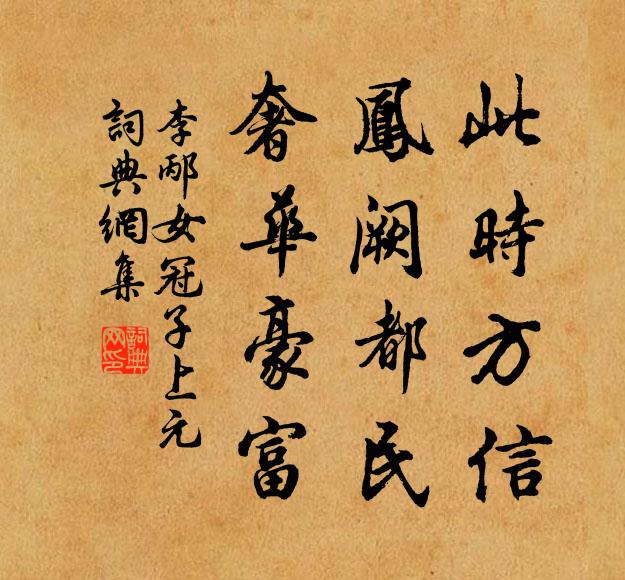 此時方信
鳳闕都民
奢華豪富
李邴女冠子上元
詞典網集
詞典网印